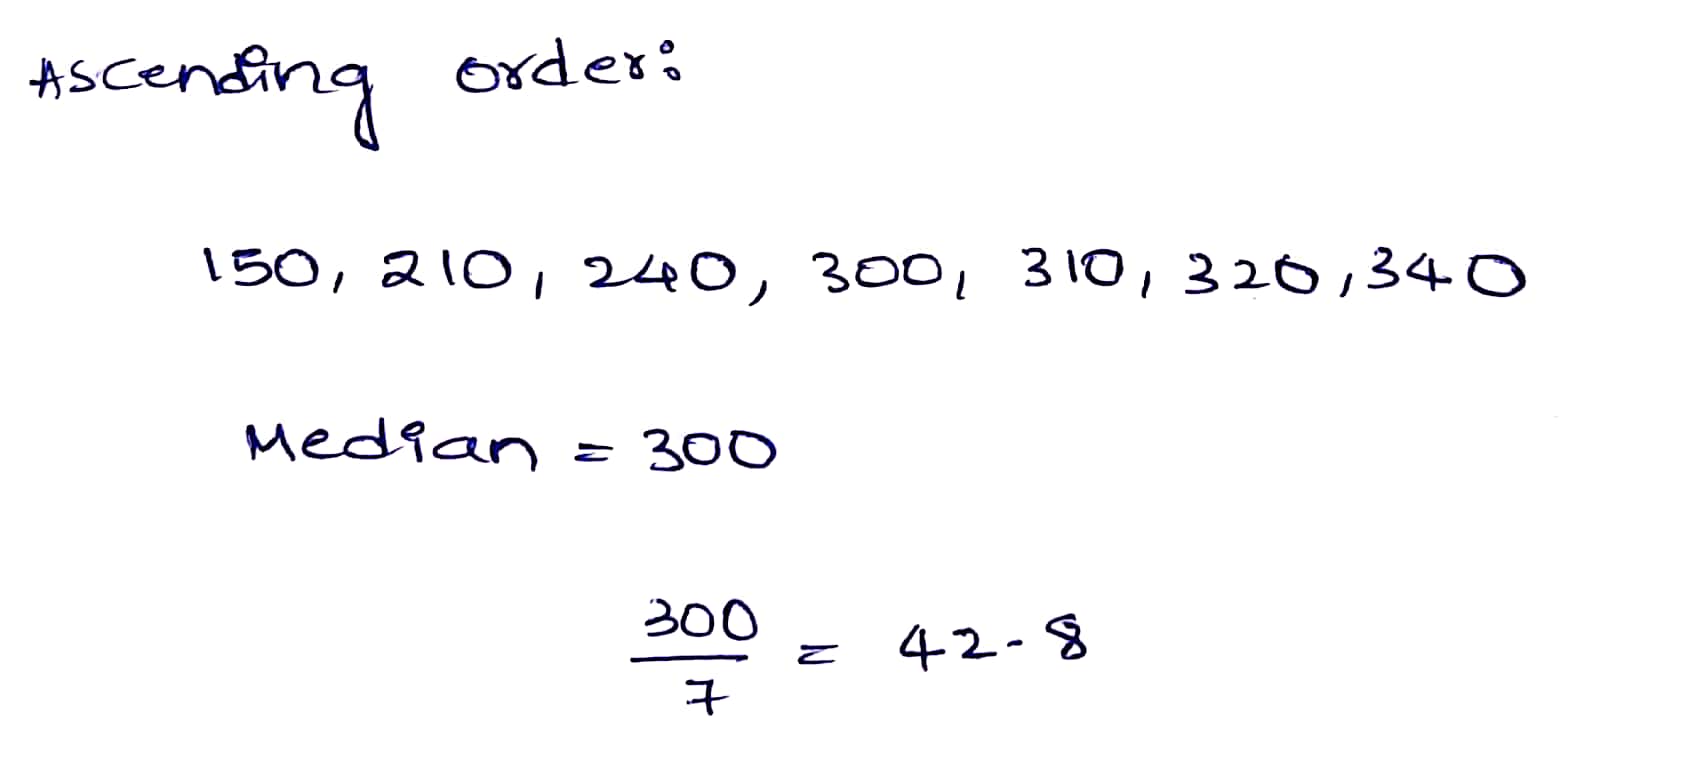 Ascending order:
150, 210, 240, 300, 310, 320, 340
Median = 300
300/7 = 42-8